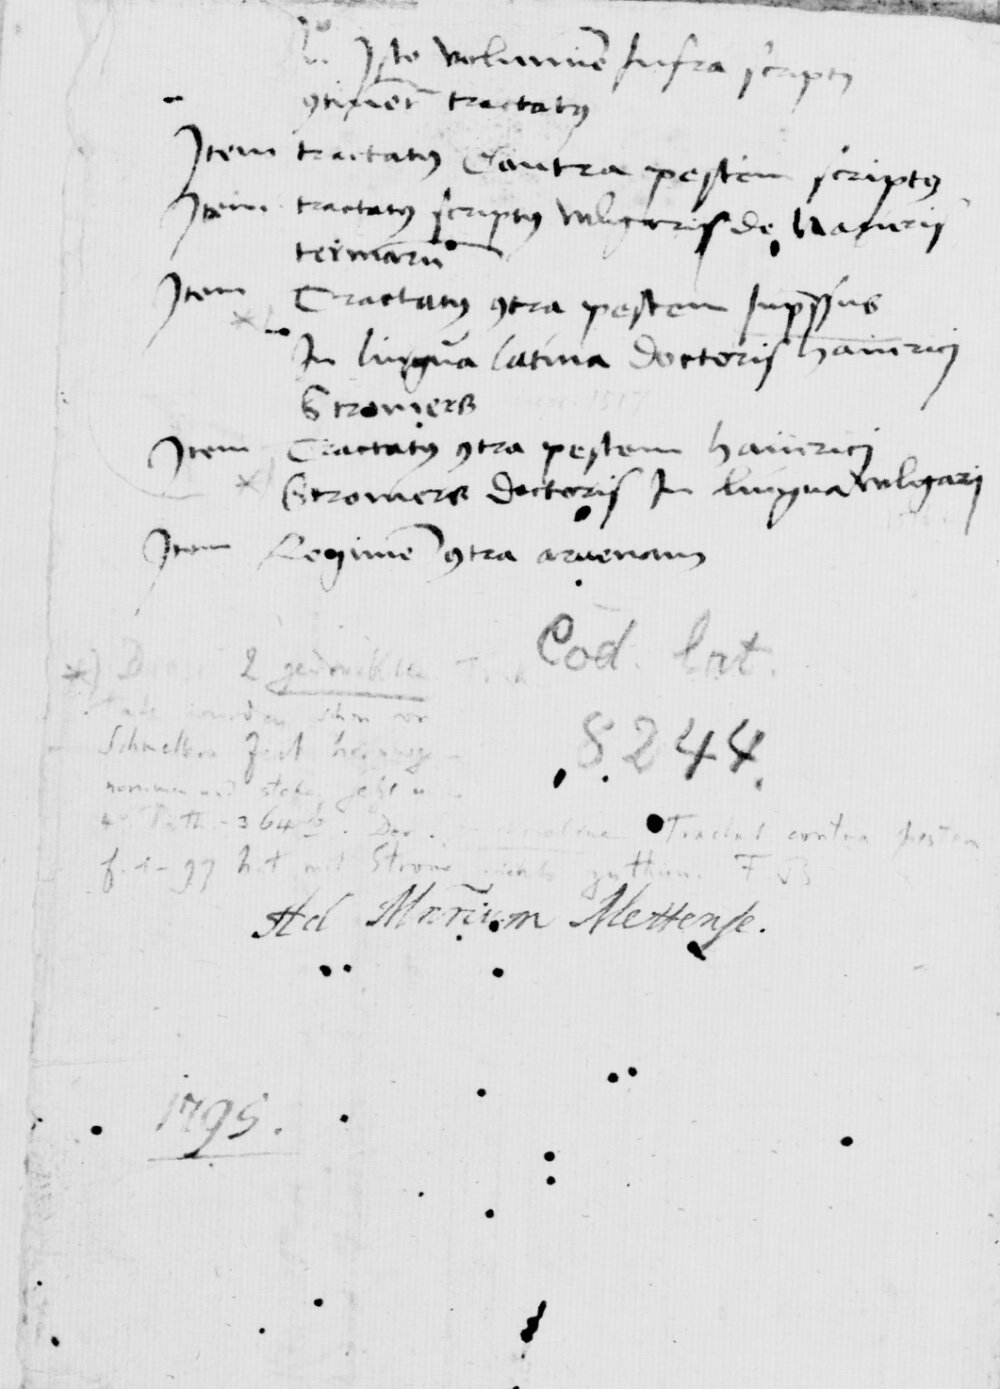 Isto volumine Infra scripti
ɔtinet̄ tractatꝯ
Item tractatꝯ Contra pestem scriptꝯ
Item tractatꝯ scriptꝯ vulgaris de
termarū
Item Tractatꝯ ɔtra pestem Imp̄ssus
*) In lingua latina doctoris hainrici
Stromers
Item Tractatꝯ ɔtra pestem hainrici
*) Stromers doctoris In lingua vulgari
Item Regimē ɔtra arenam
Cod. lat.
8244.
*) Diese 2 gedruckten Trak-
tate wurden schon vor
Schmellers Zeit herausge-
nommen und
4° Path. 364. Der Tractat contra pestem
f. 1-97 hat mit Stromer nichts zu thun. F B
Ad Mr̄ium Mettense.
1795.